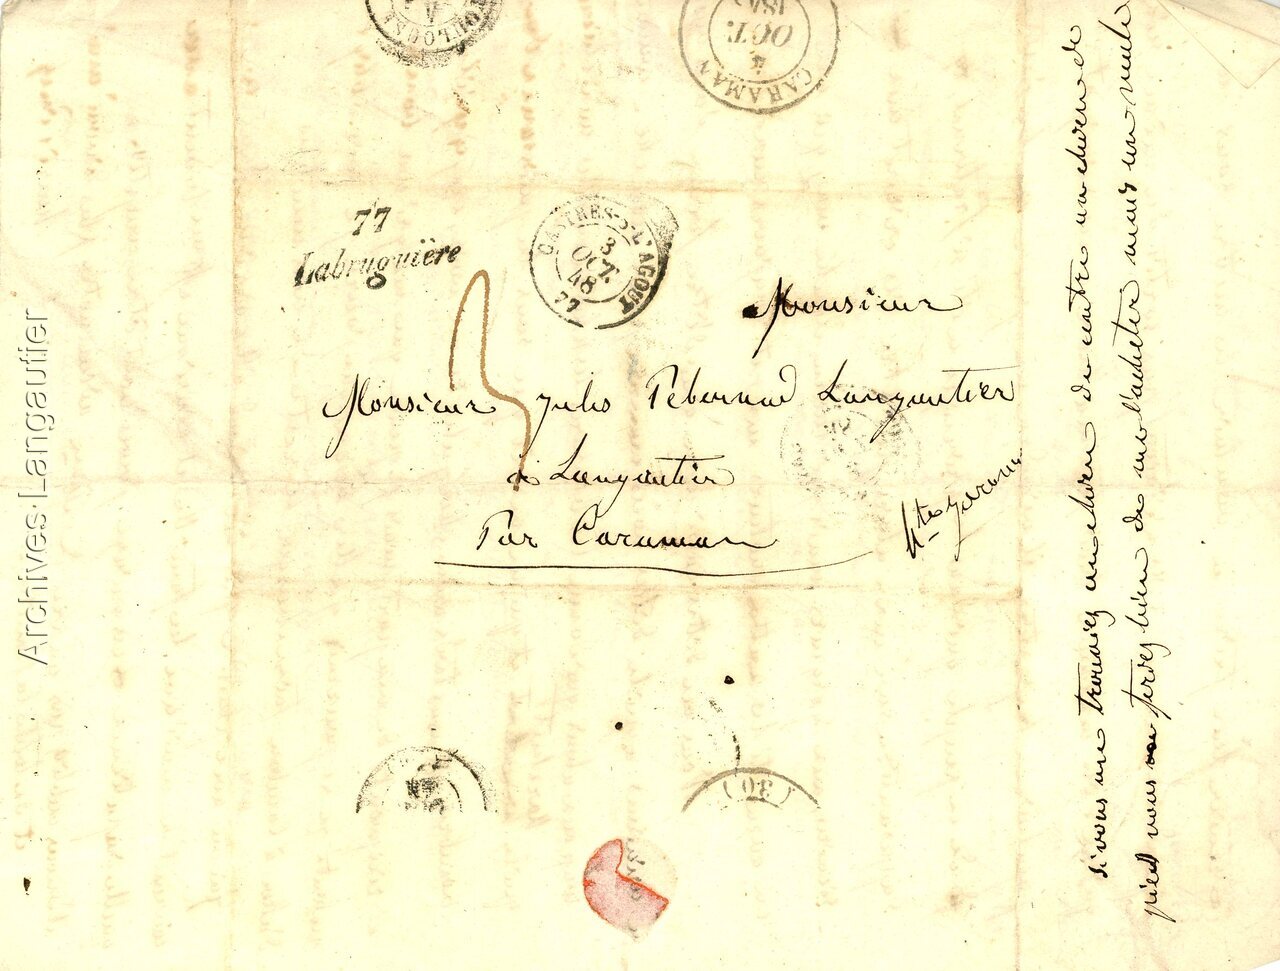 TOULOUSE
4
CARAMAN
4
OCT.
184
77
Labruguière
CASTRES-S-L'AGOUT
3
OCT.
48
77
3
Monsieur
Monsieur Jules Pebernad Langautier
à Langautier
Par Caraman
hte garonne
(30)
si vous me trouviez un chien de
pied vous ferez bien de me l'acheter mais un
Archives-Langautier